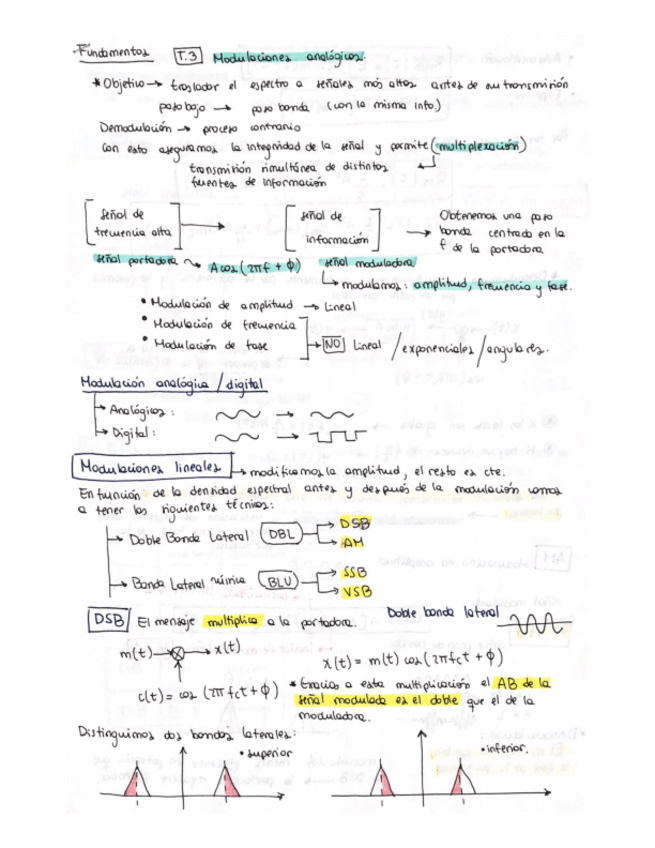 Fundamentos T.3 Modulaciones analógicas.
* Objetivo → trasladar el espectro a señales más altas antes de su transmisión
paso bajo → paso banda (con la misma info.)
Demodulación → proceso contrario
Con esto aseguramos la integridad de la señal y permite (multiplexación)
transmisión simultánea de distintas
fuentes de información
señal de
frecuencia alta
señal de
información
→ Obtenemos una paso
banda centrada en la
f de la portadora.
señal portadora → A cos (2πf + ϕ)
señal moduladora
→ modulamos: amplitud, frecuencia y fase.
• Modulación de amplitud → Lineal
• Modulación de frecuencia
• Modulación de fase
→ NO Lineal / exponenciales / angulares.
Modulación analógica / digital
→ Analógica:
→ Digital:
Modulaciones lineales → modificamos la amplitud, el resto es cte.
En función de la densidad espectral antes y después de la modulación vamos
a tener las siguientes técnicas:
→ Doble Banda Lateral (DBL) → DSB
→ AM
→ Banda Lateral única (BLU) → SSB
→ VSB
DSB El mensaje multiplica a la portadora.
Doble banda lateral
m(t) → ⊗ → x(t)
x(t) = m(t) cos (2πfct + ϕ)
c(t) = cos (2πfct + ϕ)
* Gracias a esta multiplicación el AB de la
señal modulada es el doble que el de la
moduladora.
Distinguimos dos bandas laterales:
• superior
• inferior.